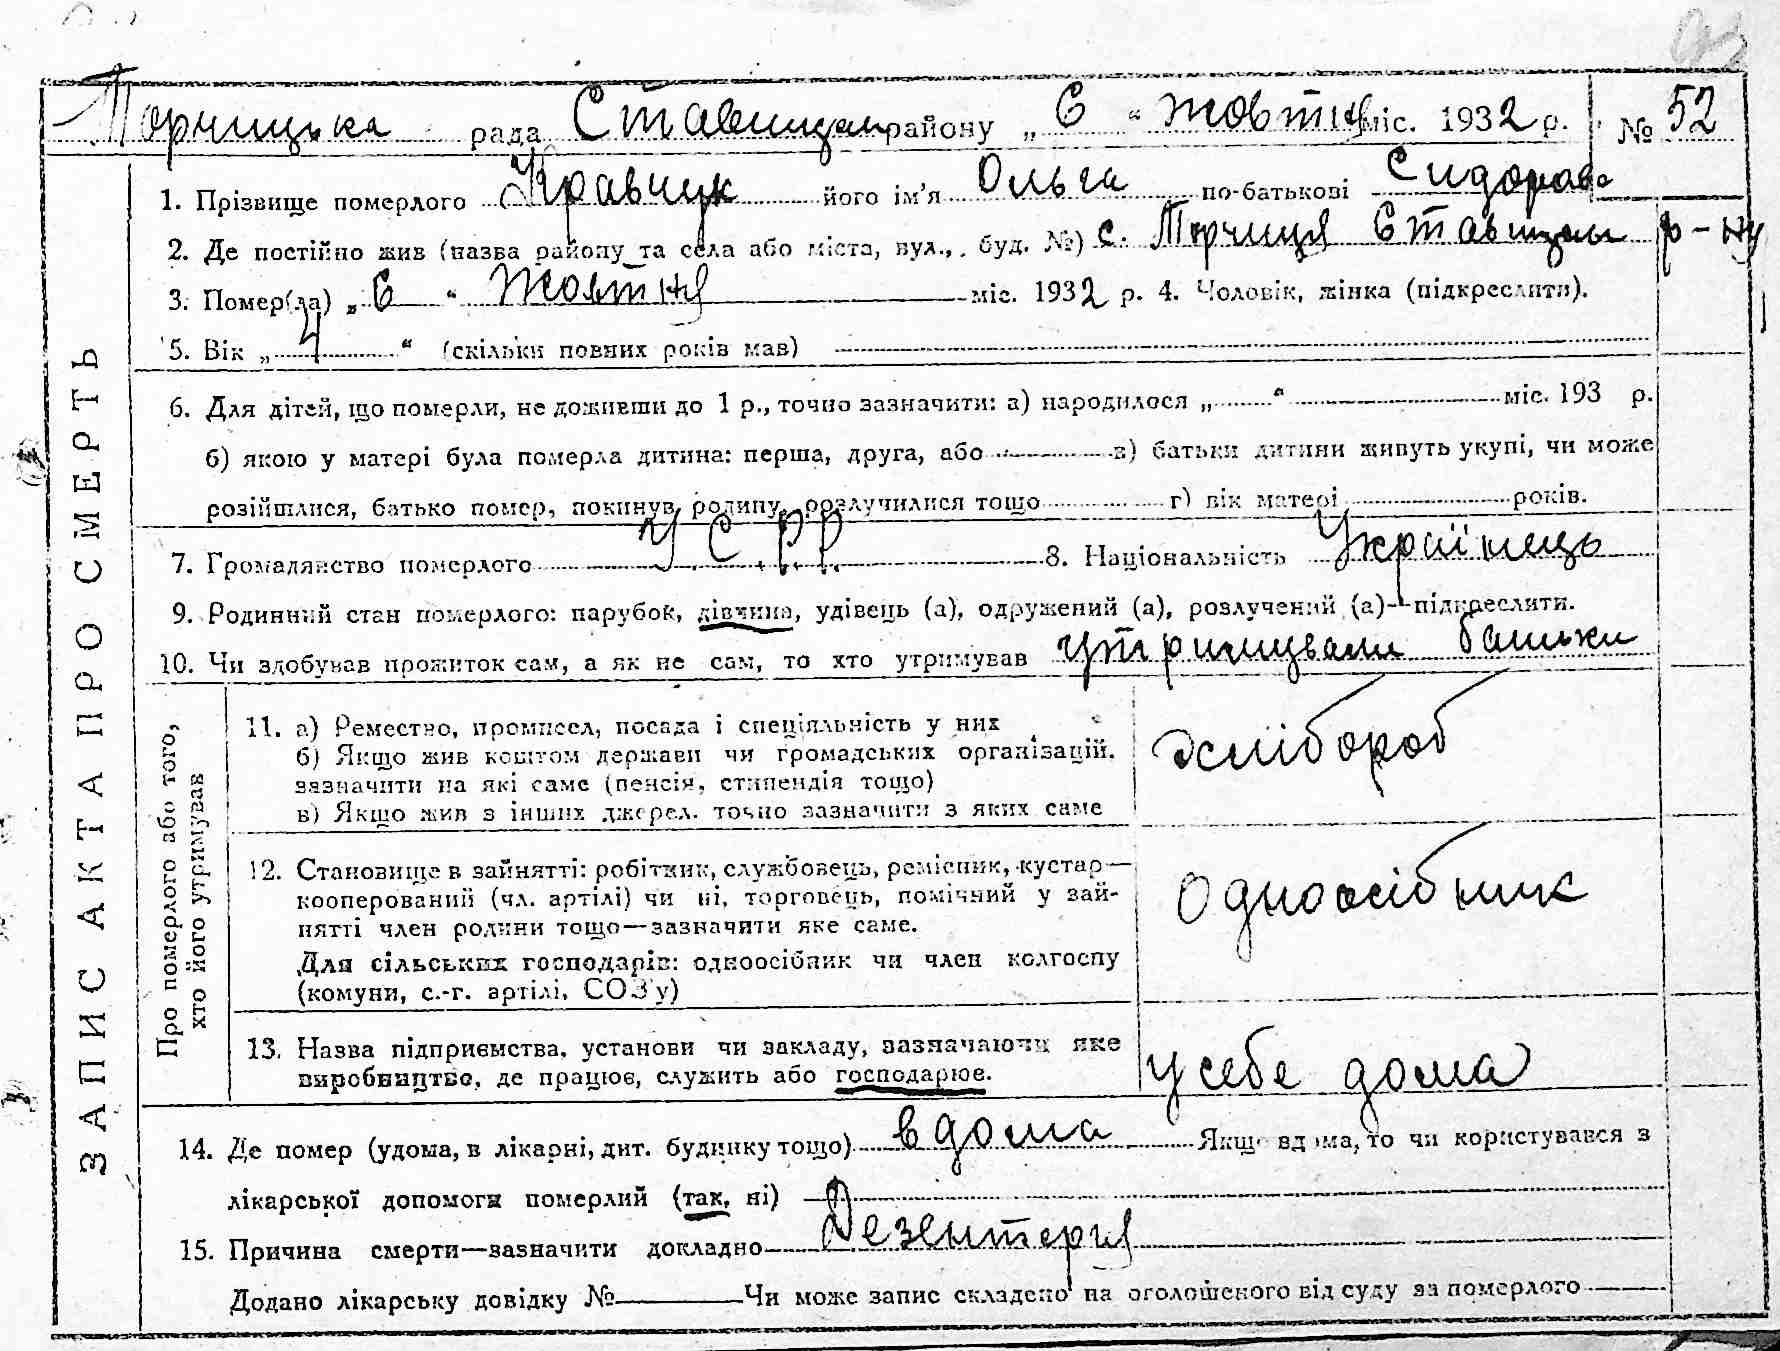 Торчицька рада Ставищан району „ 6 “ жовтня міс. 1932 р. № 52
ЗАПИС АКТА ПРО СМЕРТЬ
1. Прізвище померлого Кравчук його ім'я Ольга по-батькові Сидорова
2. Де постійно жив (назва району та села або міста, вул., буд. №) с. Торчиця Ставищан р-ну
3. Помер(ла) „ 6 “ жовтня міс. 1932 р. 4. Чоловік, жінка (підкреслити).
5. Вік „ 4 “ (скільки повних років мав)
6. Для дітей, що померли, не доживши до 1 р., точно зазначити: а) народилося „ “ міс. 193 р.
б) якою у матері була померла дитина: перша, друга, або в) батьки дитини живуть укупі, чи може
розійшлися, батько помер, покинув родину, розлучилися тощо г) вік матері років.
7. Громадянство померлого У.С.Р.Р. 8. Національність Українець
9. Родинний стан померлого: парубок, дівчина, удівець (а), одружений (а), розлучений (а)—підкреслити.
10. Чи здобував прожиток сам, а як не сам, то хто утримував утримували батьки
Про померлого або того,
хто його утримував
11. а) Ремество, промисел, посада і спеціяльність у них
б) Якщо жив коштом держави чи громадських організацій,
зазначити на які саме (пенсія, стипендія тощо)
в) Якщо жив з інших джерел, точно зазначити з яких саме
хлібороб
12. Становище в зайнятті: робітник, службовець, ремісник, кустар—
кооперований (чл. артілі) чи ні, торговець, помічний у зай-
нятті член родини тощо—зазначити яке саме.
Для сільських господарів: одноосібник чи член колгоспу
(комуни, с.-г. артілі, СОЗ'у)
Одноосібник
13. Назва підприємства, установи чи закладу, зазначаючи яке
виробництво, де працює, служить або господарює.
у себе дома
14. Де помер (удома, в лікарні, дит. будинку тощо) вдома Якщо вдома, то чи користувався з
лікарської допомоги померлий (так, ні)
15. Причина смерти—зазначити докладно Дезентерия
Додано лікарську довідку № Чи може запис складено на оголошеного від суду за померлого